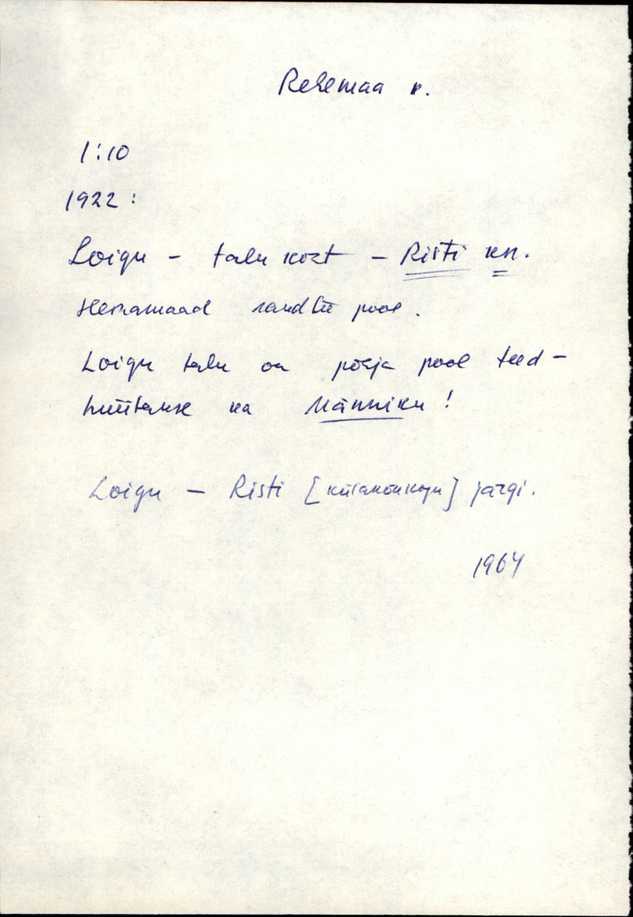 Rehemaa k.
1:10
1922:
Loigu – talu koht – Risti kn.
Heinamaad raudtee pool.
Loigu talu on põhja pool teed –
hüütakse ka Männiku!
Loigu – Risti [külanõukogu] järgi.
1964